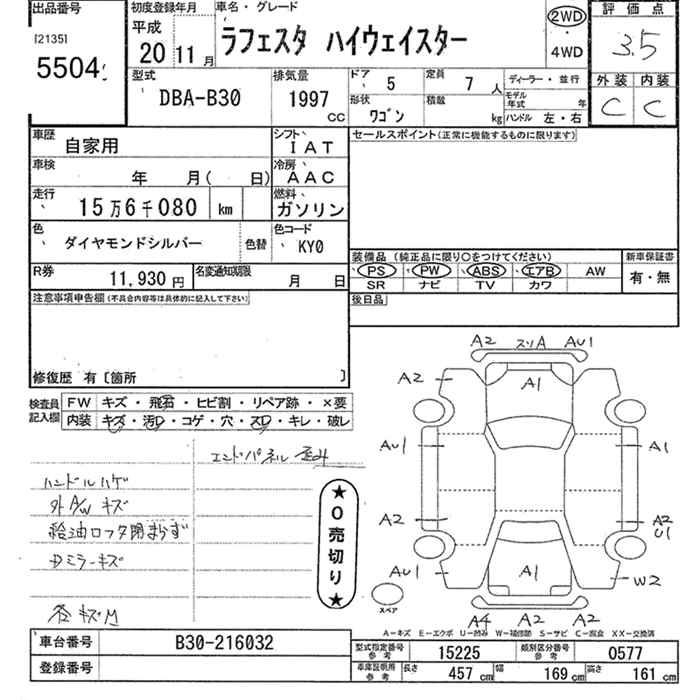 出品番号
[2135]
5504
初度登録年月
平成
20 年 11 月
車名・グレード
ラフェスタ ハイウェイスター
2WD
4WD
評価点
3.5
外装 内装
C C
型式
DBA-B30
排気量
1997 CC
ドア 5
定員 7 人
形状 ワゴン
積載 kg
ディーラー・並行
モデル年式 年
ハンドル 左・右
車歴 自家用
シフト IAT
車検 年 月( 日)
冷房 AAC
走行 15万6千080 km
燃料 ガソリン
色 ダイヤモンドシルバー
色替
色コード KY0
R券 11,930 円
名変通知期限 月 日
セールスポイント(正常に機能するものに限ります)
装備品(純正品に限り○をつけてください)
新車保証書
PS PW ABS エアB AW
SR ナビ TV カワ
有・無
後日品
注意事項申告欄(不具合内容等は具体的に記入して下さい)
修復歴 有〔箇所 〕
検査員記入欄
FW キズ・飛石・ヒビ割・リペア跡・×要
内装 キズ・汚レ・コゲ・穴・スレ・キレ・破レ
エンドパネル 歪み
ハンドルハゲ
外A/W キズ
給油ロフタ閉まらず
Dミラーキズ
各キズM
★０売切り★
A2 スリA AU1
A2 A1
AU1 A1
A2 A2
U1
AU1 A1 W2
A4 A2 A2
スペア
A-キズ E-エクボ U-凹み W-補修跡 S-サビ C-腐食 XX-交換済
車台番号 B30-216032
登録番号
型式指定番号 参考 15225
類別区分番号 参考 0577
車庫証明用 参考 長さ 457 cm 幅 169 cm 高さ 161 cm